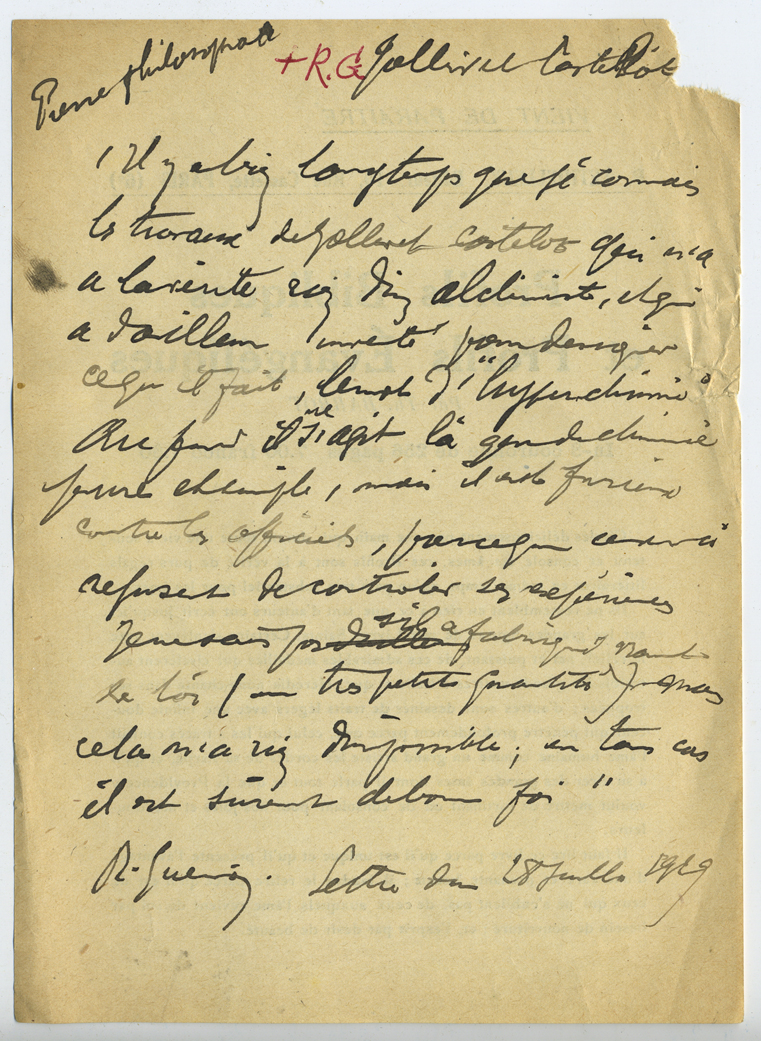 Pierre philosophale
+ R.G. Jollivet Castelot
"Il y a bien longtemps que je connais
les travaux de Jollivet Castelot qui n'a
à la vérité rien d'un alchimiste, et qui
a d'ailleurs inventé pour désigner
ce qu'il fait, le mot d'"hyperchimie"
Au fond il ne s'agit là que de chimie
pure et simple, mais il est furieux
contre les officiels, parce que ceux-ci
refusent de contrôler ses expériences
Je ne sais pas s'il a fabriqué vraiment
de l'or (en très petite quantité) mais
cela n'a rien d'impossible ; en tous cas
il est sûrement de bonne foi"
R. Guénon. Lettre du 28 Juillet 1929